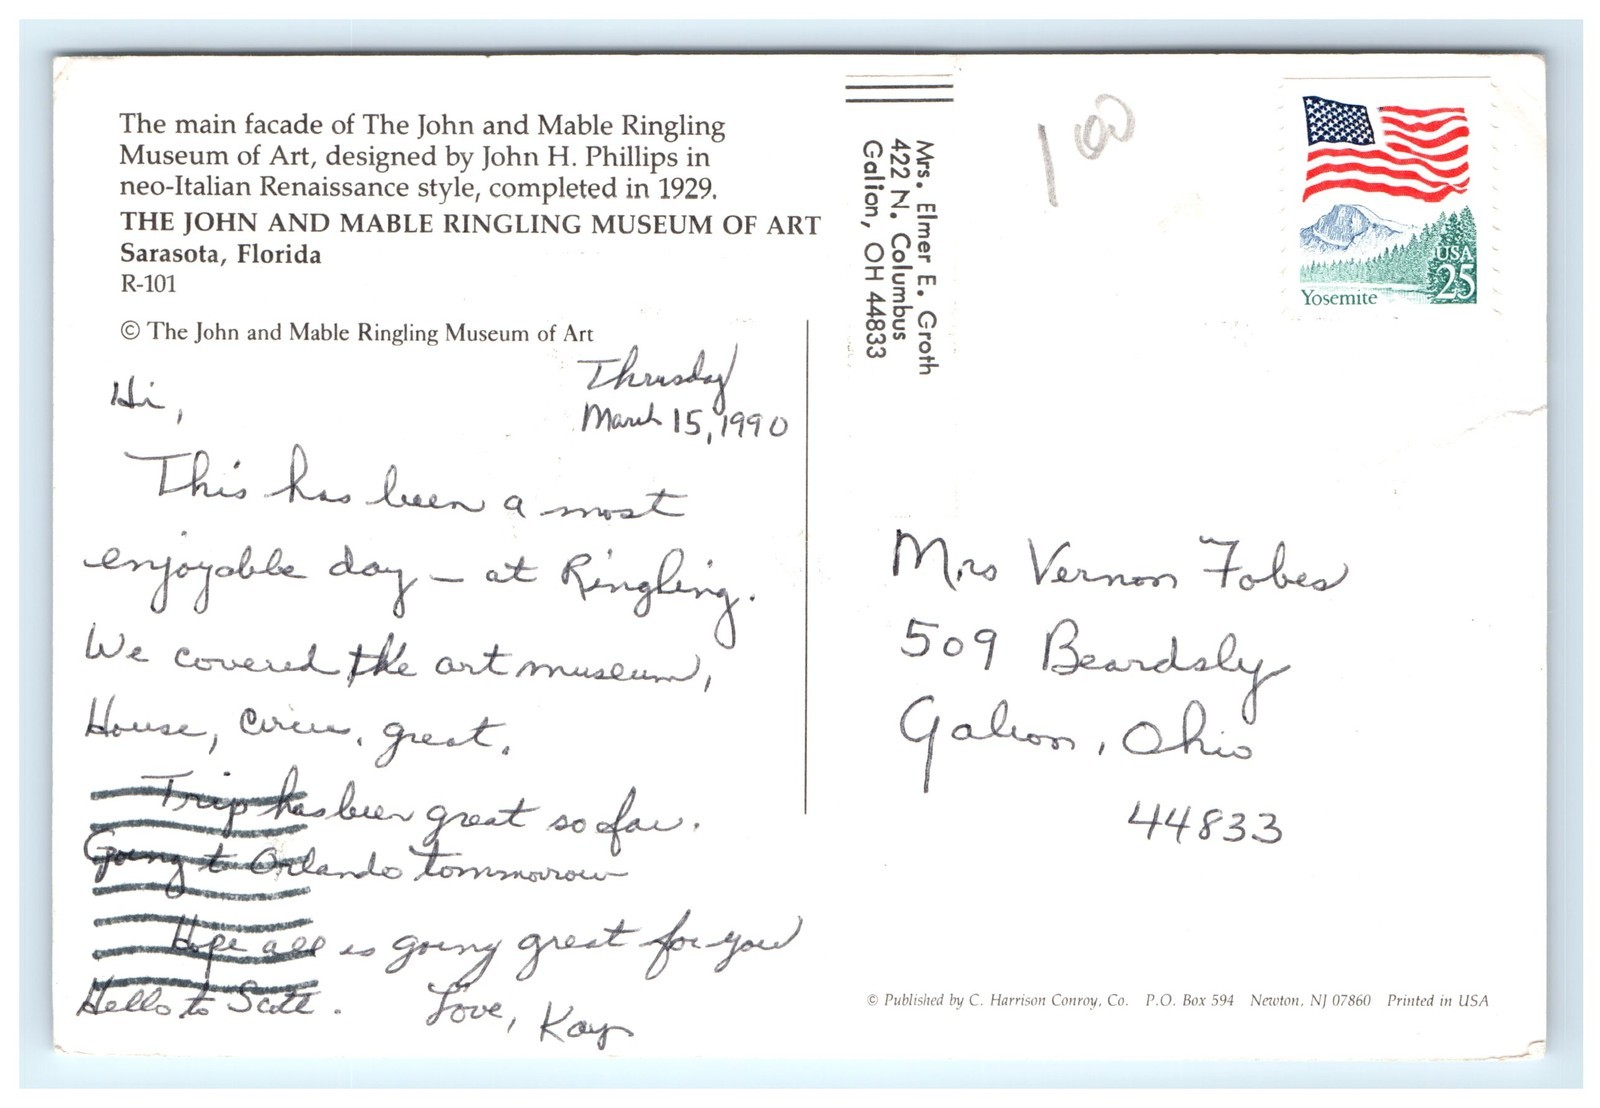 The main facade of The John and Mable Ringling
Museum of Art, designed by John H. Phillips in
neo-Italian Renaissance style, completed in 1929.
THE JOHN AND MABLE RINGLING MUSEUM OF ART
Sarasota, Florida
R-101
© The John and Mable Ringling Museum of Art
Thrusday
March 15, 1990
Hi,
This has been a most
enjoyable day – at Ringling.
We covered the art museum,
House, Circus, great.
Trip has been great so far.
Going to Orlando tommorrow
Hope all is going great for you
Hello to Scott. Love, Kay
Mrs. Elmer E. Groth
422 N. Columbus
Galion, OH 44833
100
USA
25
Yosemite
Mrs Vernon Fobes
509 Beardsly
Galion, Ohio
44833
© Published by C. Harrison Conroy, Co. P.O. Box 594 Newton, NJ 07860 Printed in USA